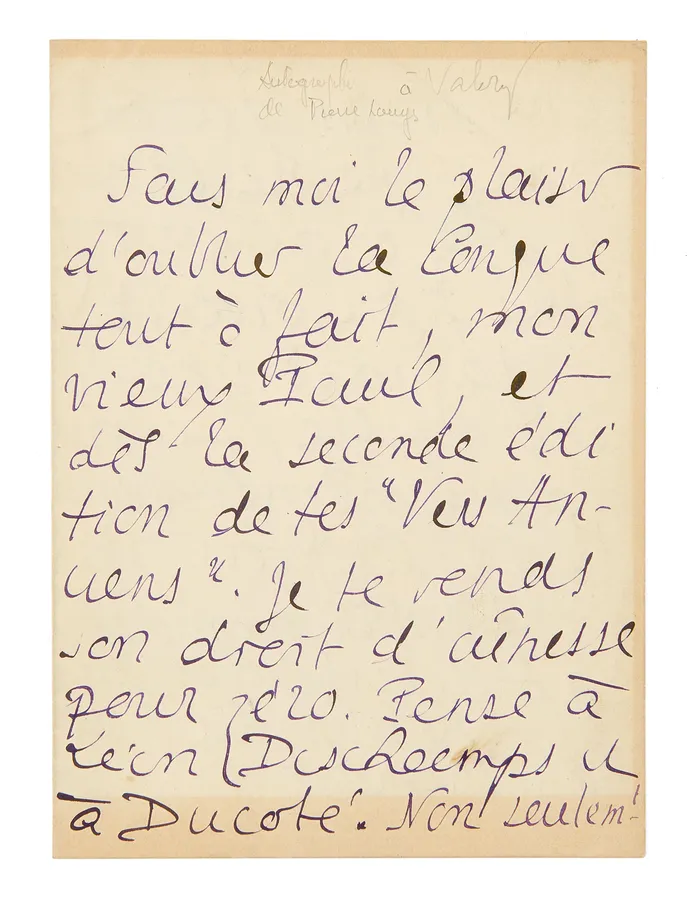 Autograph à Valery
de Pierre Louys
Fais moi le plaisir
d'oublier la Conque
tout à fait, mon
vieux Paul, et
dès la seconde édi
tion de tes "Vers An-
ciens". Je te rends
son droit d'aînesse
pour zéro. Pense à
Léon Deschamps et
à Ducoté. Non seulemt